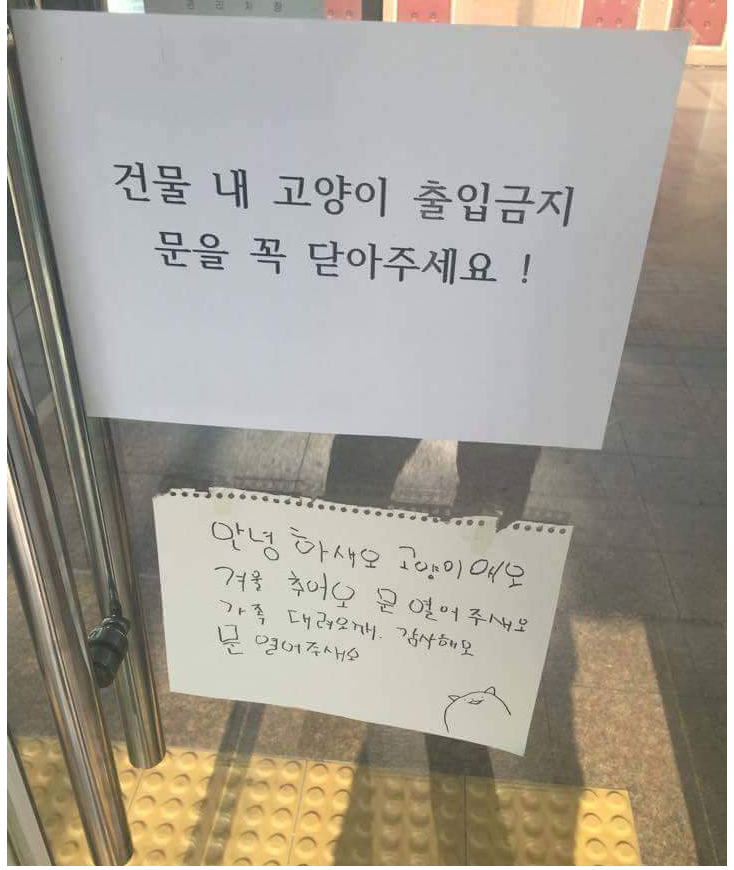 관리사항
건물 내 고양이 출입금지
문을 꼭 닫아주세요 !
안녕 하새오 고양이애오
겨울 추어오 문 열어주새오
가족 대려오깨. 감사해오
문 열어주새오